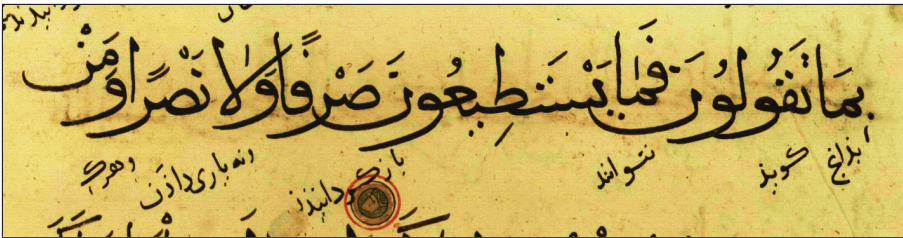 بِمَا تَقُولُونَ فَمَا يَسْتَطِيعُونَ صَرْفًا وَلَا نَصْرًا وَمَنْ
بذانچ کویند نتوانند باز کردانیذن ونه یاری دادن وهرک